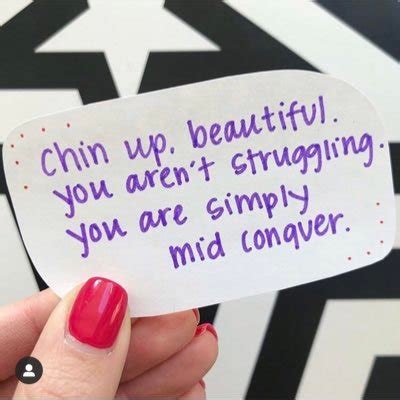 Chin up, beautiful.
you aren't struggling.
you are simply
mid conquer.